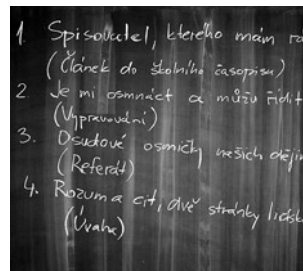 1. Spisovatel, kterého mám
(Článek do školního časopisu)
2. Je mi osmnáct a můžu řídit
(Vypravování)
3. Osudové osmičky našich dějin
(Referát)
4. Rozum a cit, dvě stránky
(Úvaha)